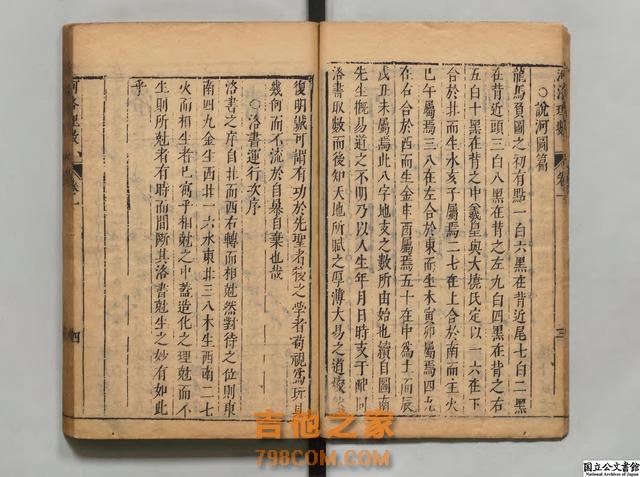 河洛理數
○說河圖篇
龍馬負圖之初有點一白六黑在背近尾七白二黑
在背近頭三白八黑在背之左九白四黑在背之右
五白十黑在背之中羲皇與大撓氏定以一六在下
合於北而生水亥子屬焉二七在上合於南而生火
巳午屬焉三八在左合於東而生木寅卯屬焉四九
在右合於西而生金申酉屬焉五十在中為土而辰
戌丑未屬焉此八字地支之數所由始也續自圖南
先生慨易道之不明乃以人生年月日時支干配河
洛書取數而後知天地所賦之厚薄大易之道燦
三
復明號可謂有功於先聖者後之學者苟視為玩具
幾何而不流於自暴自棄也哉
○洛書運行次序
洛書之序自北而西右轉而相尅然對待之位則東
南四九金生西北一六水東北三八木生西南二七
火而相生者已寓乎相尅之中蓋造化之理尅而不
生則所尅者有時而間斷其洛書尅生之妙有如此
乎
河洛理數
卷一
四
吉他之家
798COM.COM
国立公文書館
National Archives of Japan